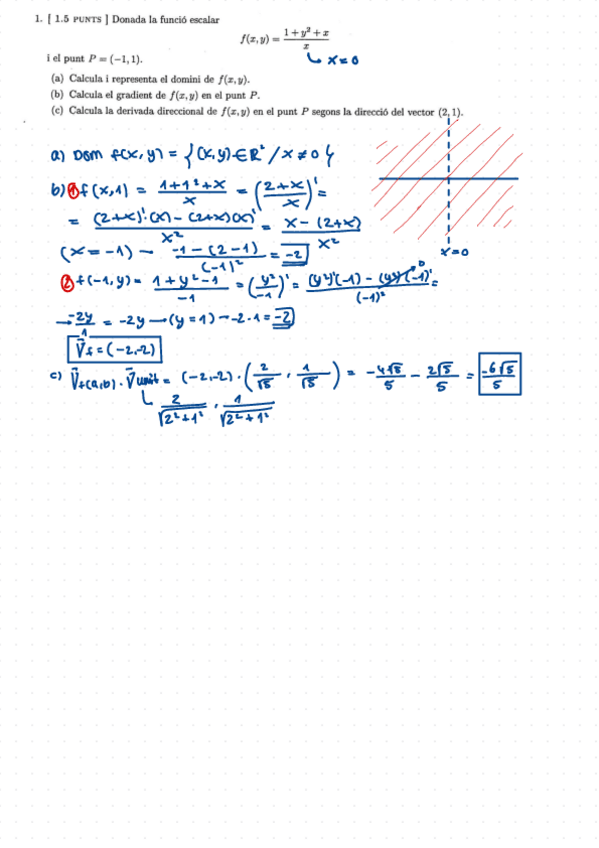 1. [ 1.5 PUNTS ] Donada la funció escalar
f(x, y) = (1 + y² + x)/x
↳ x=0
i el punt P = (−1, 1).
(a) Calcula i representa el domini de f(x, y).
(b) Calcula el gradient de f(x, y) en el punt P.
(c) Calcula la derivada direccional de f(x, y) en el punt P segons la direcció del vector (2, 1).
a) Dom f(x, y) = {(x, y) ∈ ℝ² / x ≠ 0}
b) ① f(x,1) = (1+1²+x)/x = ((2+x)/x)' =
= ((2+x)'·(x) − (2+x)(x)')/x² = (x − (2+x))/x²
(x = −1) → (−1 − (2−1))/(−1)² = −2
x=0
② f(−1, y) = (1 + y² − 1)/−1 = (y²/−1)' = ((y²)'(−1) − (y²)(−1)')/(−1)² =
0
→ −2y/1 = −2y → (y = 1) → −2·1 = −2
∇f = (−2,−2)
c) ∇f(a,b) · V⃗unit = (−2,−2) · (2/√5, 1/√5) = −4√5/5 − 2√5/5 = −6√5/5
↳ 2/√(2²+1²), 1/√(2²+1²)